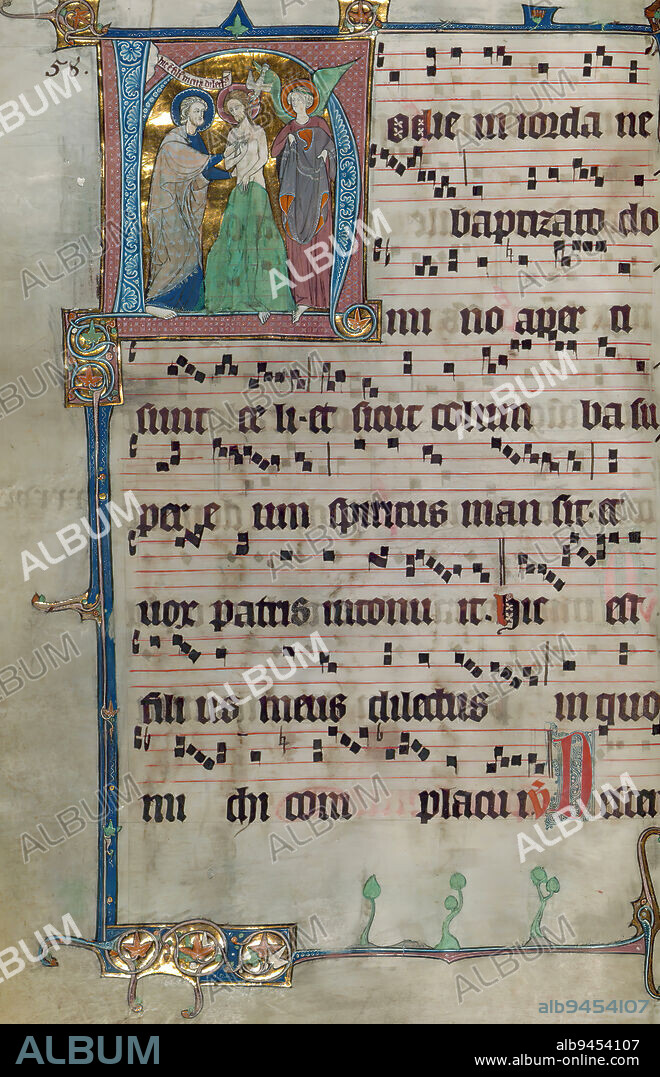 58.
Hodie in iorda ne
baptizato do
mi no aper ti
sunt ce li·et sicut colum ba su
per e um spiritus man sit·et
uox patris intonu it. Hic est
fili us meus dilectus in quo
mi chi com placu it
ALBUM
alb9454107
ALBUM
alb9454107
www.album-online.com